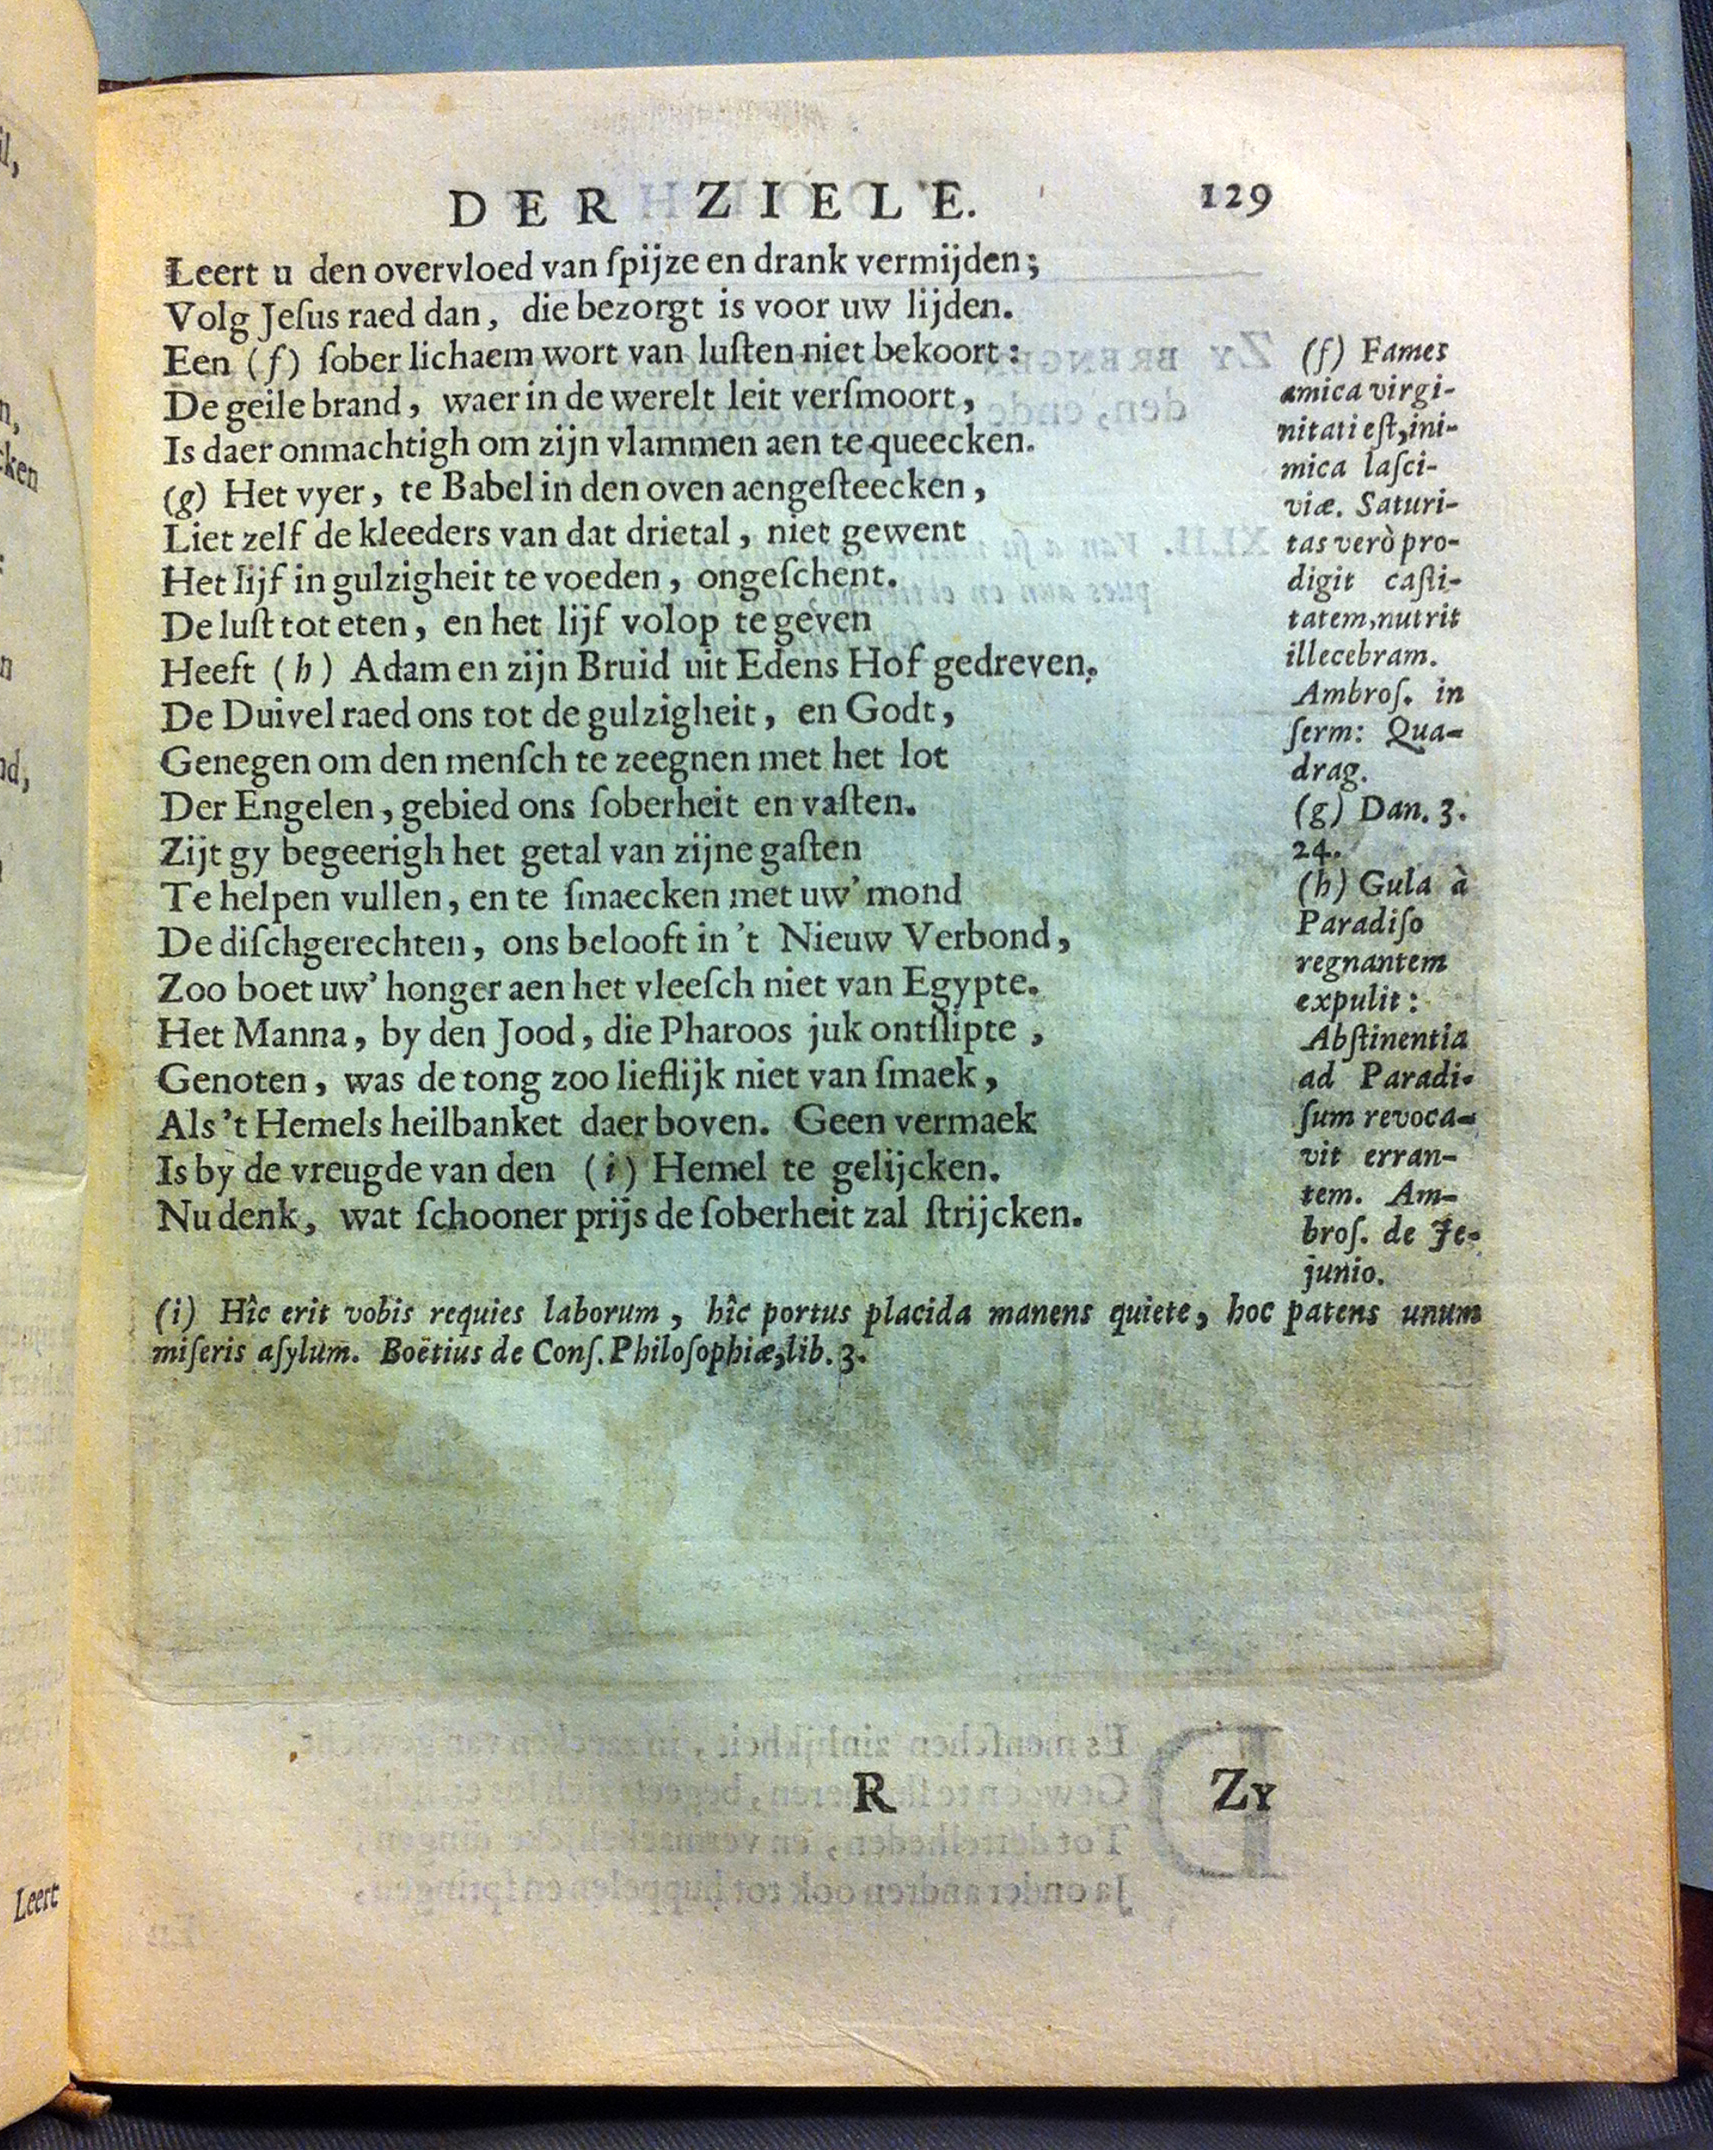 DER ZIELE. 129
Leert u den overvloed van ſpijze en drank vermijden;
Volg Jeſus raed dan, die bezorgt is voor uw lijden.
Een (f) ſober lichaem wort van luſten niet bekoort:
De geile brand, waer in de werelt leit verſmoort,
Is daer onmachtigh om zijn vlammen aen te queecken.
(g) Het vyer, te Babel in den oven aengeſteecken,
Liet zelf de kleeders van dat drietal, niet gewent
Het lijf in gulzigheit te voeden, ongeſchent.
De luſt tot eten, en het lijf volop te geven
Heeft (h) Adam en zijn Bruid uit Edens Hof gedreven.
De Duivel raed ons tot de gulzigheit, en Godt,
Genegen om den menſch te zeegnen met het lot
Der Engelen, gebied ons ſoberheit en vaſten.
Zijt gy begeerigh het getal van zijne gaſten
Te helpen vullen, en te ſmaecken met uw' mond
De diſchgerechten, ons belooft in 't Nieuw Verbond,
Zoo boet uw' honger aen het vleeſch niet van Egypte.
Het Manna, by den Jood, die Pharoos juk ontſlipte,
Genoten, was de tong zoo lieflijk niet van ſmaek,
Als 't Hemels heilbanket daer boven. Geen vermaek
Is by de vreugde van den (i) Hemel te gelijcken.
Nu denk, wat ſchooner prijs de ſoberheit zal ſtrijcken.
(f) Fames
amica virgi-
nitati eſt, ini-
mica laſci-
viæ. Saturi-
tas verò pro-
digit caſti-
tatem, nutrit
illecebram.
Ambroſ. in
ſerm: Qua-
drag.
(g) Dan. 3.
24.
(h) Gula à
Paradiſo
regnantem
expulit:
Abſtinentia
ad Paradi-
ſum revoca-
vit erran-
tem. Am-
broſ. de Je-
junio.
(i) Hîc erit vobis requies laborum, hîc portus placida manens quiete, hoc patens unum
miſeris aſylum. Boëtius de Conſ. Philoſophiæ, lib. 3.
R Zy
Leert